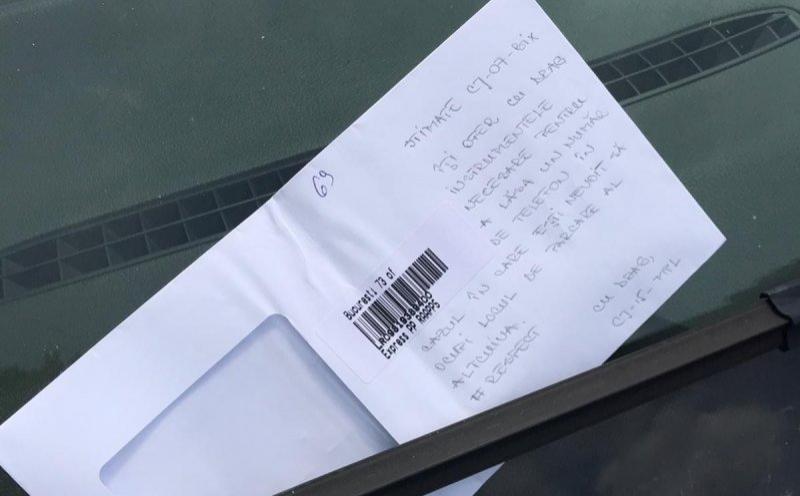 STIMATE CJ-07-BIX
ÎȚI OFER CU DRAG
INSTRUMENTELE
NECESARE PENTRU
A LĂSA UN NUMĂR
DE TELEFON ÎN
CAZUL ÎN CARE EȘTI NEVOIT SĂ
OCUPI LOCUL DE PARCARE AL
ALTCUIVA.
# RESPECT
CU DRAG,
CJ-15-MPL
69
Bucuresti 73 of
Express PP ROPPS